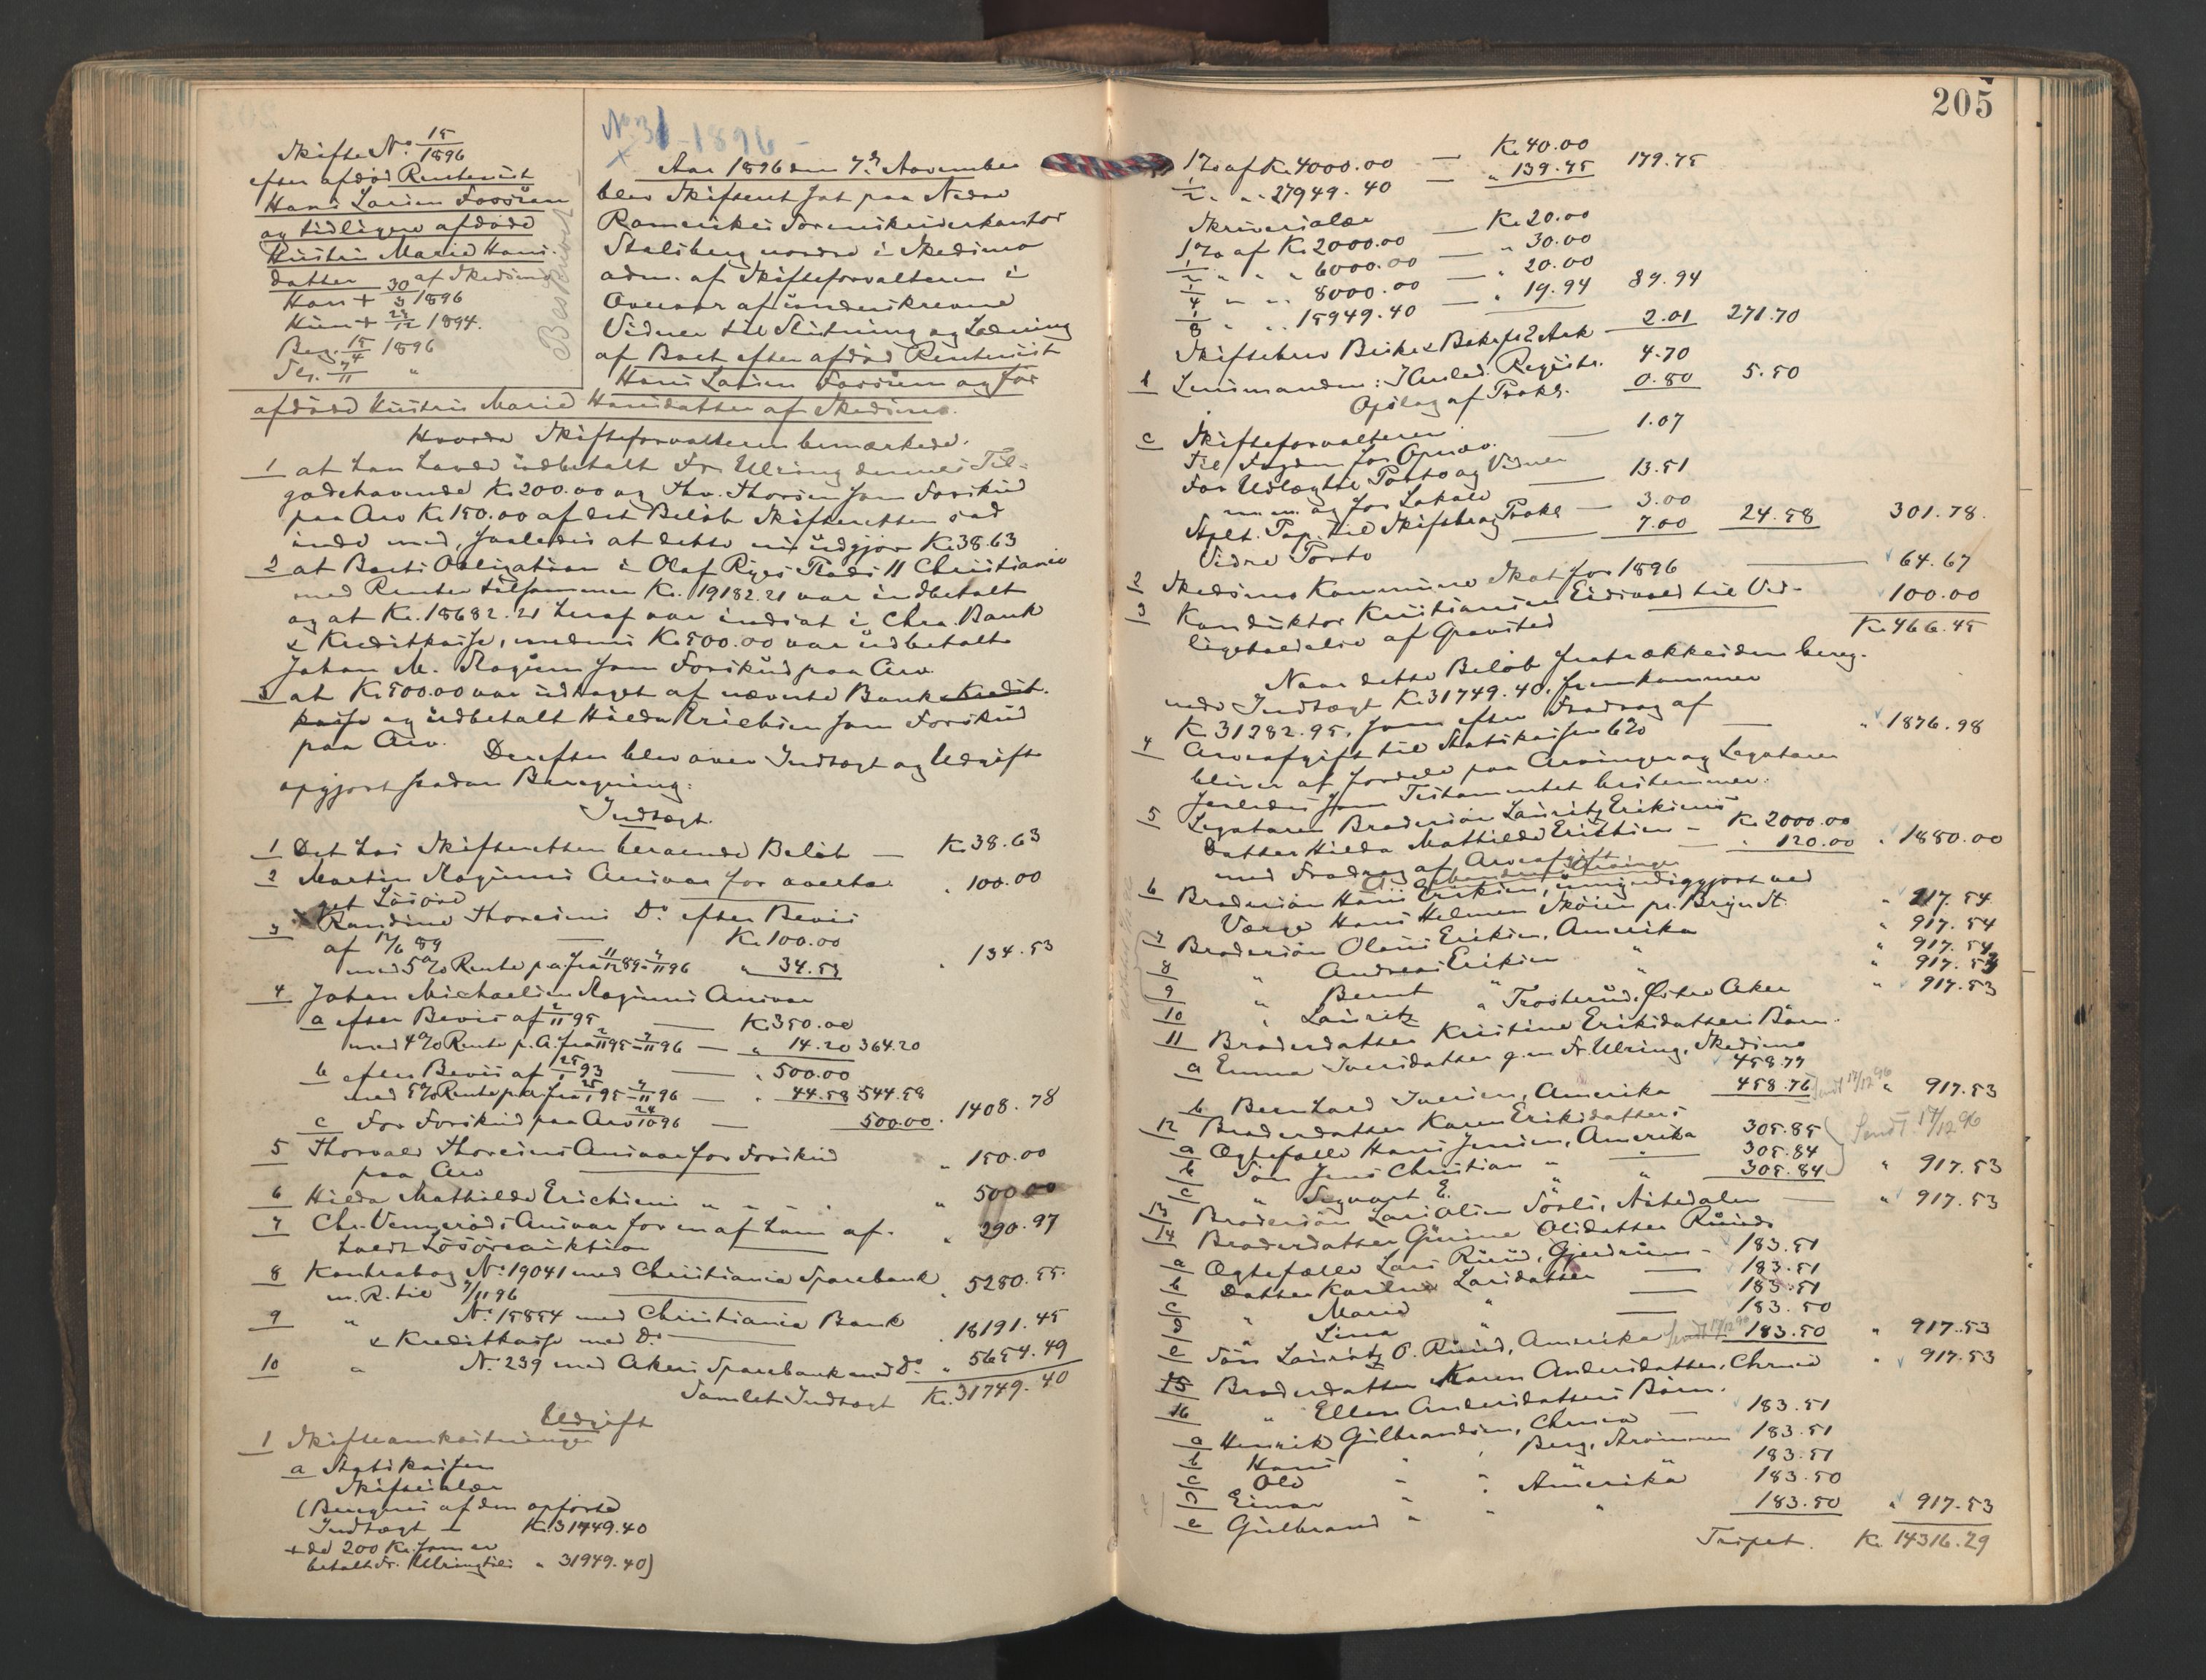 Skifte No. 15/1896
efter afdød Rentenist
Hans Larsen Fossum
og tidligere afdøde
Hustru Marie Hans-
datter af Skedsmo
Han + 30/3 1896
Hun + 28/12 1894.
Beg. 15/4 1896
Sl. 7/11 "
Beskrevet
No. 31 - 1896 -
Aar 1896 den 7de November
blev Skifteret sat paa Nedre
Romerikes Sorenskriverkontor
Stalsberg nordre i Skedsmo
adm. af Skifteforvalteren i
Overvær af underskrevne
Vidner til Slutning og Lodning
af Boet efter afdød Rentenist
Hans Larsen Fossum og før
afdøde Hustru Marie Hansdatter af Skedsmo.
Hvorda Skifteforvalteren bemærkede.
1 at han havde udbetalt Fr. Ulring dennes Til-
godehavende Kr. 200.00 og Thv. Thoresen som Forskud
paa Arv Kr. 150.00 af det Beløb Skifteretten sad
inde med, saaledes at dette nu udgjør Kr. 38.63
2 at Boets Obligation i Olaf Ryes Plads 11 Christiania
med Renter tilsammen Kr. 19182.21 var indbetalt
og at Kr. 18682.21 heraf var indsat i Chra. Bank
& Kreditkasse, medens Kr. 500.00 var udbetalt
Johan M. Mogium som Forskud paa Arv.
3 at Kr. 500.00 var udtaget af nævnte Bank & Kredit-
kasse og udbetalt Hilda Erichsen som Forskud
paa Arv.
Derefter blev over Indtægt og Udgift
opgjort saadan Beregning:
Indtægt.
1 Det hos Skifteretten beroende Beløb — Kr. 38.63
2 Martin Mogiums Ansvar for overta-
get Løsøre " 100.00
3 Randine Thoresens Do. efter Bevis
af 12/6 89 — Kr. 100.00
med 5% Rente p.a. fra 11/12 89 - 7/11 96 " 34.53 " 134.53
4 Johan Michaelsen Mogiums Ansvar
a efter Bevis af 2/11 95 — Kr. 350.00
med 4% Rente p.A. fra 2/11 95 - 7/11 96 — " 14.20 364.20
b efter Bevis af 25/1 93 — " 500.00
med 5% Rente p.a. fra 25/1 95 - 7/11 96 — " 44.58 544.58
c For Forskud paa Arv 24/10 96 — 500.00 " 1408.78
5 Thorvald Thoresens Ansvar for Forskud
paa Arv " 150.00
6 Hilda Mathilde Erichsens " " " " " 500.00
7 Chr. Vengerøds Ansvar for en af ham af-
holdt Løsøreauktion " 290.97
8 Kontrabog No. 19041 med Christiania Sparebank
m. R. til 7/11 96 " 5280.55
9 " No. 15854 med Christiania Bank
& Kreditkasse med Do. — " 18191.45
10 " No. 239 med Akers Sparebank med Do. " 5654.49
Samlet Indtægt Kr. 31749.40
Udgift
1 Skifteomkostninger
a Statskassen
Skiftesalær
(Beregnes af den opførte
Indtægt — Kr. 31749.40
+ de 200 Kr. som er
betalt Fr. Ulring tils. " 31949.40)
205
1% af Kr. 4000.00 — Kr. 40.00
1/2 " " 27949.40 — " 139.75 179.75
Skriversalær
1% af Kr. 2000.00 — Kr. 20.00
1/2 " " " 6000.00 — " 30.00
1/4 " " " 8000.00 — " 20.00
1/8 " " " 15949.40 — " 19.94 89.94
Skiftebrev Beskr. & Bekr. 2 Ark — 2.01 271.70
b Lensmanden: Registr. 4.70
Opslag af Prokl. 0.80 5.50
c Skifteforvalteren
Til Fogden for 1.07
For Udlægte Porto og Vidner
m.m. og for Lokale — 13.51
Stplt. Pap. til Skiftebr. og Prokl — 3.00
Vidre Porto — 7.00 24.58 301.78.
2 Skedsmo Kommune Skat for 1896 — 64.67
3 Konduktør Kristiansen Eidsvold til Ved-
ligeholdelse af Gravsted 100.00
Kr. 466.45
Naar dette Beløb fratrækkes den bereg-
nede Indtægt Kr. 31749.40, fremkommer
Kr. 31282.95, som efter Fradrag af
4 Arveafgift til Statskassen 6% — " 1876.98
bliver at fordele paa Arvinger og Legatarer
saaledes som Testamentet bestemmer:
5 Legataren Brodersøn Lauritz Eriksens
Datter Hilda Mathilde Erichsen — Kr. 2000.00
med Fradrag af Arveafgift — " 120.00 " 1880.00
6 Brodersøn Hans Eriksen, umyndiggjort ved
Værge Hans Helmer Skøien pr. Bryn St. " 917.54
7 Brodersøn Olaus Eriksen, Amerika " 917.54
8 " Andreas Eriksen " " 917.54
9 " Bernt " " 917.53
10 " Lauritz " Trosterud, Østre Aker " 917.53
11 Broderdatter Kristine Eriksdatters Børn.
a Emma Iversdatter g. m. Fr. Ulring, Skedsmo 458.77
b Bernhard Iversen, Amerika 458.76 Sendt 17/12 96 " 917.53
12 Broderdatter Karen Eriksdatters
a Ægtefælle Hans Jensen, Amerika 305.85
b Søn Jens Christian " " 305.84
c " Sigvart E. " " 305.84 Sendt 17/12 96 " 917.53
13 Brodersøn Lars Olsen Sørli, Aasedalen — " 917.53
14 Broderdatter Gurine Olsdatter Ruuds
a Ægtefælle Lars Ruud, Gjerdrum — 183.51
b Datter Karine Larsdatter — 183.51
c " Marie " — 183.51
d " Lina " — 183.50
e Søn Lauritz O. Ruud, Amerika Sendt 17/12 96 183.50 " 917.53
15 Broderdatter Maren Andersdatter, Chrnia " 917.53
16 " Ellen Andersdatters Børn.
a Henrik Gulbrandsen, Chrnia — 183.51
b Hans " , Berg, Strømmen 183.51
c Ole " " Amerika 183.51
d Einar " " " 183.50
e Gulbrand " " " 183.50 " 917.53
Trspt. Kr. 14316.29